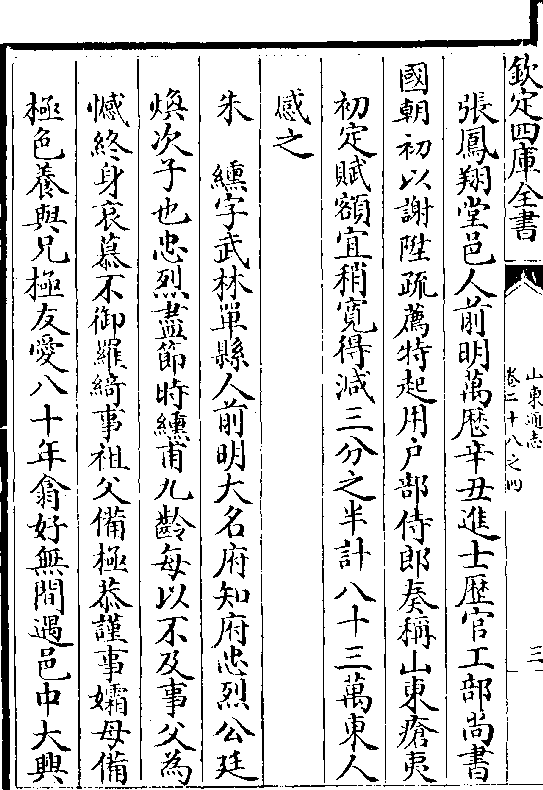 欽定四庫全書
山東通志
卷二十八之四
三
張鳳翔堂邑人前明萬厯辛丑進士歷官工部尚書
國朝初以謝陞疏薦特起用户部侍郎奏稱山東瘡夷
初定賦額宜稍寛得減三分之半計八十三萬東人
感之
朱纁字武林單縣人前明大名府知府忠烈公廷
煥次子也忠烈盡節時纁甫九齡每以不及事父為
憾終身哀慕不御羅綺事祖父備極恭謹事孀母備
極色養與兄極友愛八十年翕好無間遇邑中大興